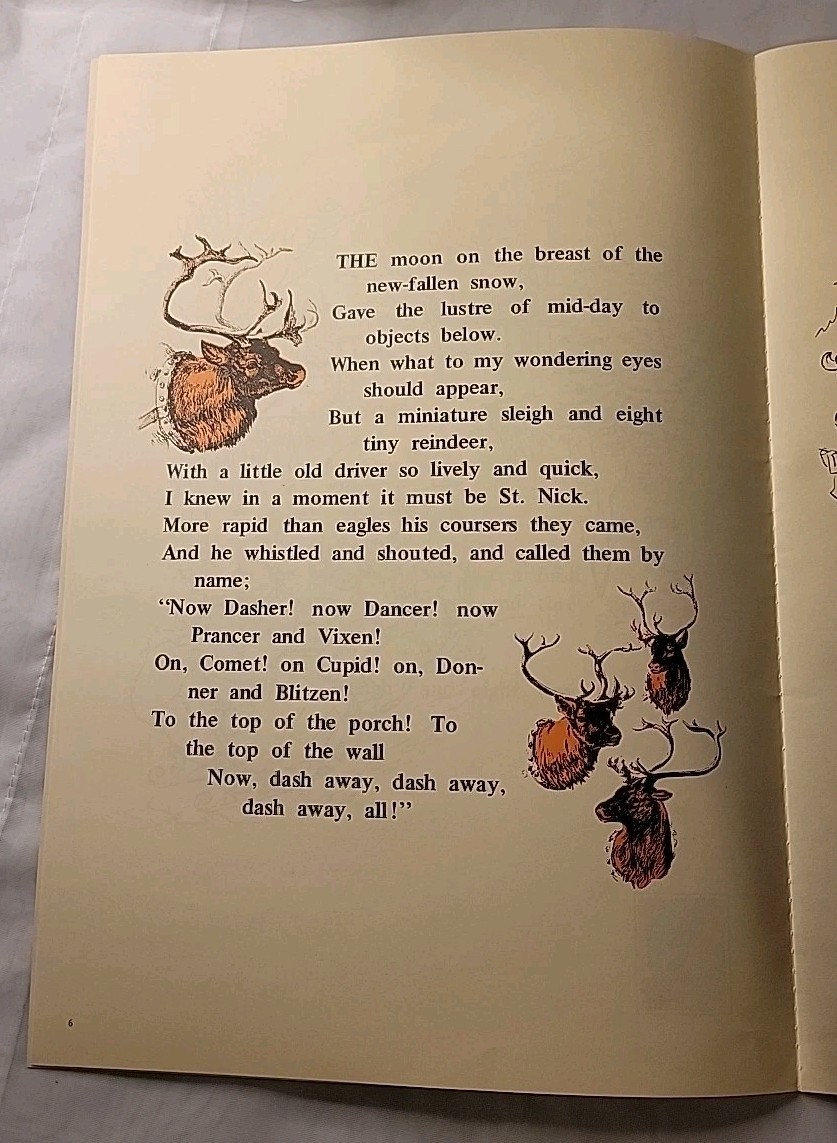 THE moon on the breast of the
new-fallen snow,
Gave the lustre of mid-day to
objects below.
When what to my wondering eyes
should appear,
But a miniature sleigh and eight
tiny reindeer,
With a little old driver so lively and quick,
I knew in a moment it must be St. Nick.
More rapid than eagles his coursers they came,
And he whistled and shouted, and called them by
name;
“Now Dasher! now Dancer! now
Prancer and Vixen!
On, Comet! on Cupid! on, Don-
ner and Blitzen!
To the top of the porch! To
the top of the wall
Now, dash away, dash away,
dash away, all!”
6